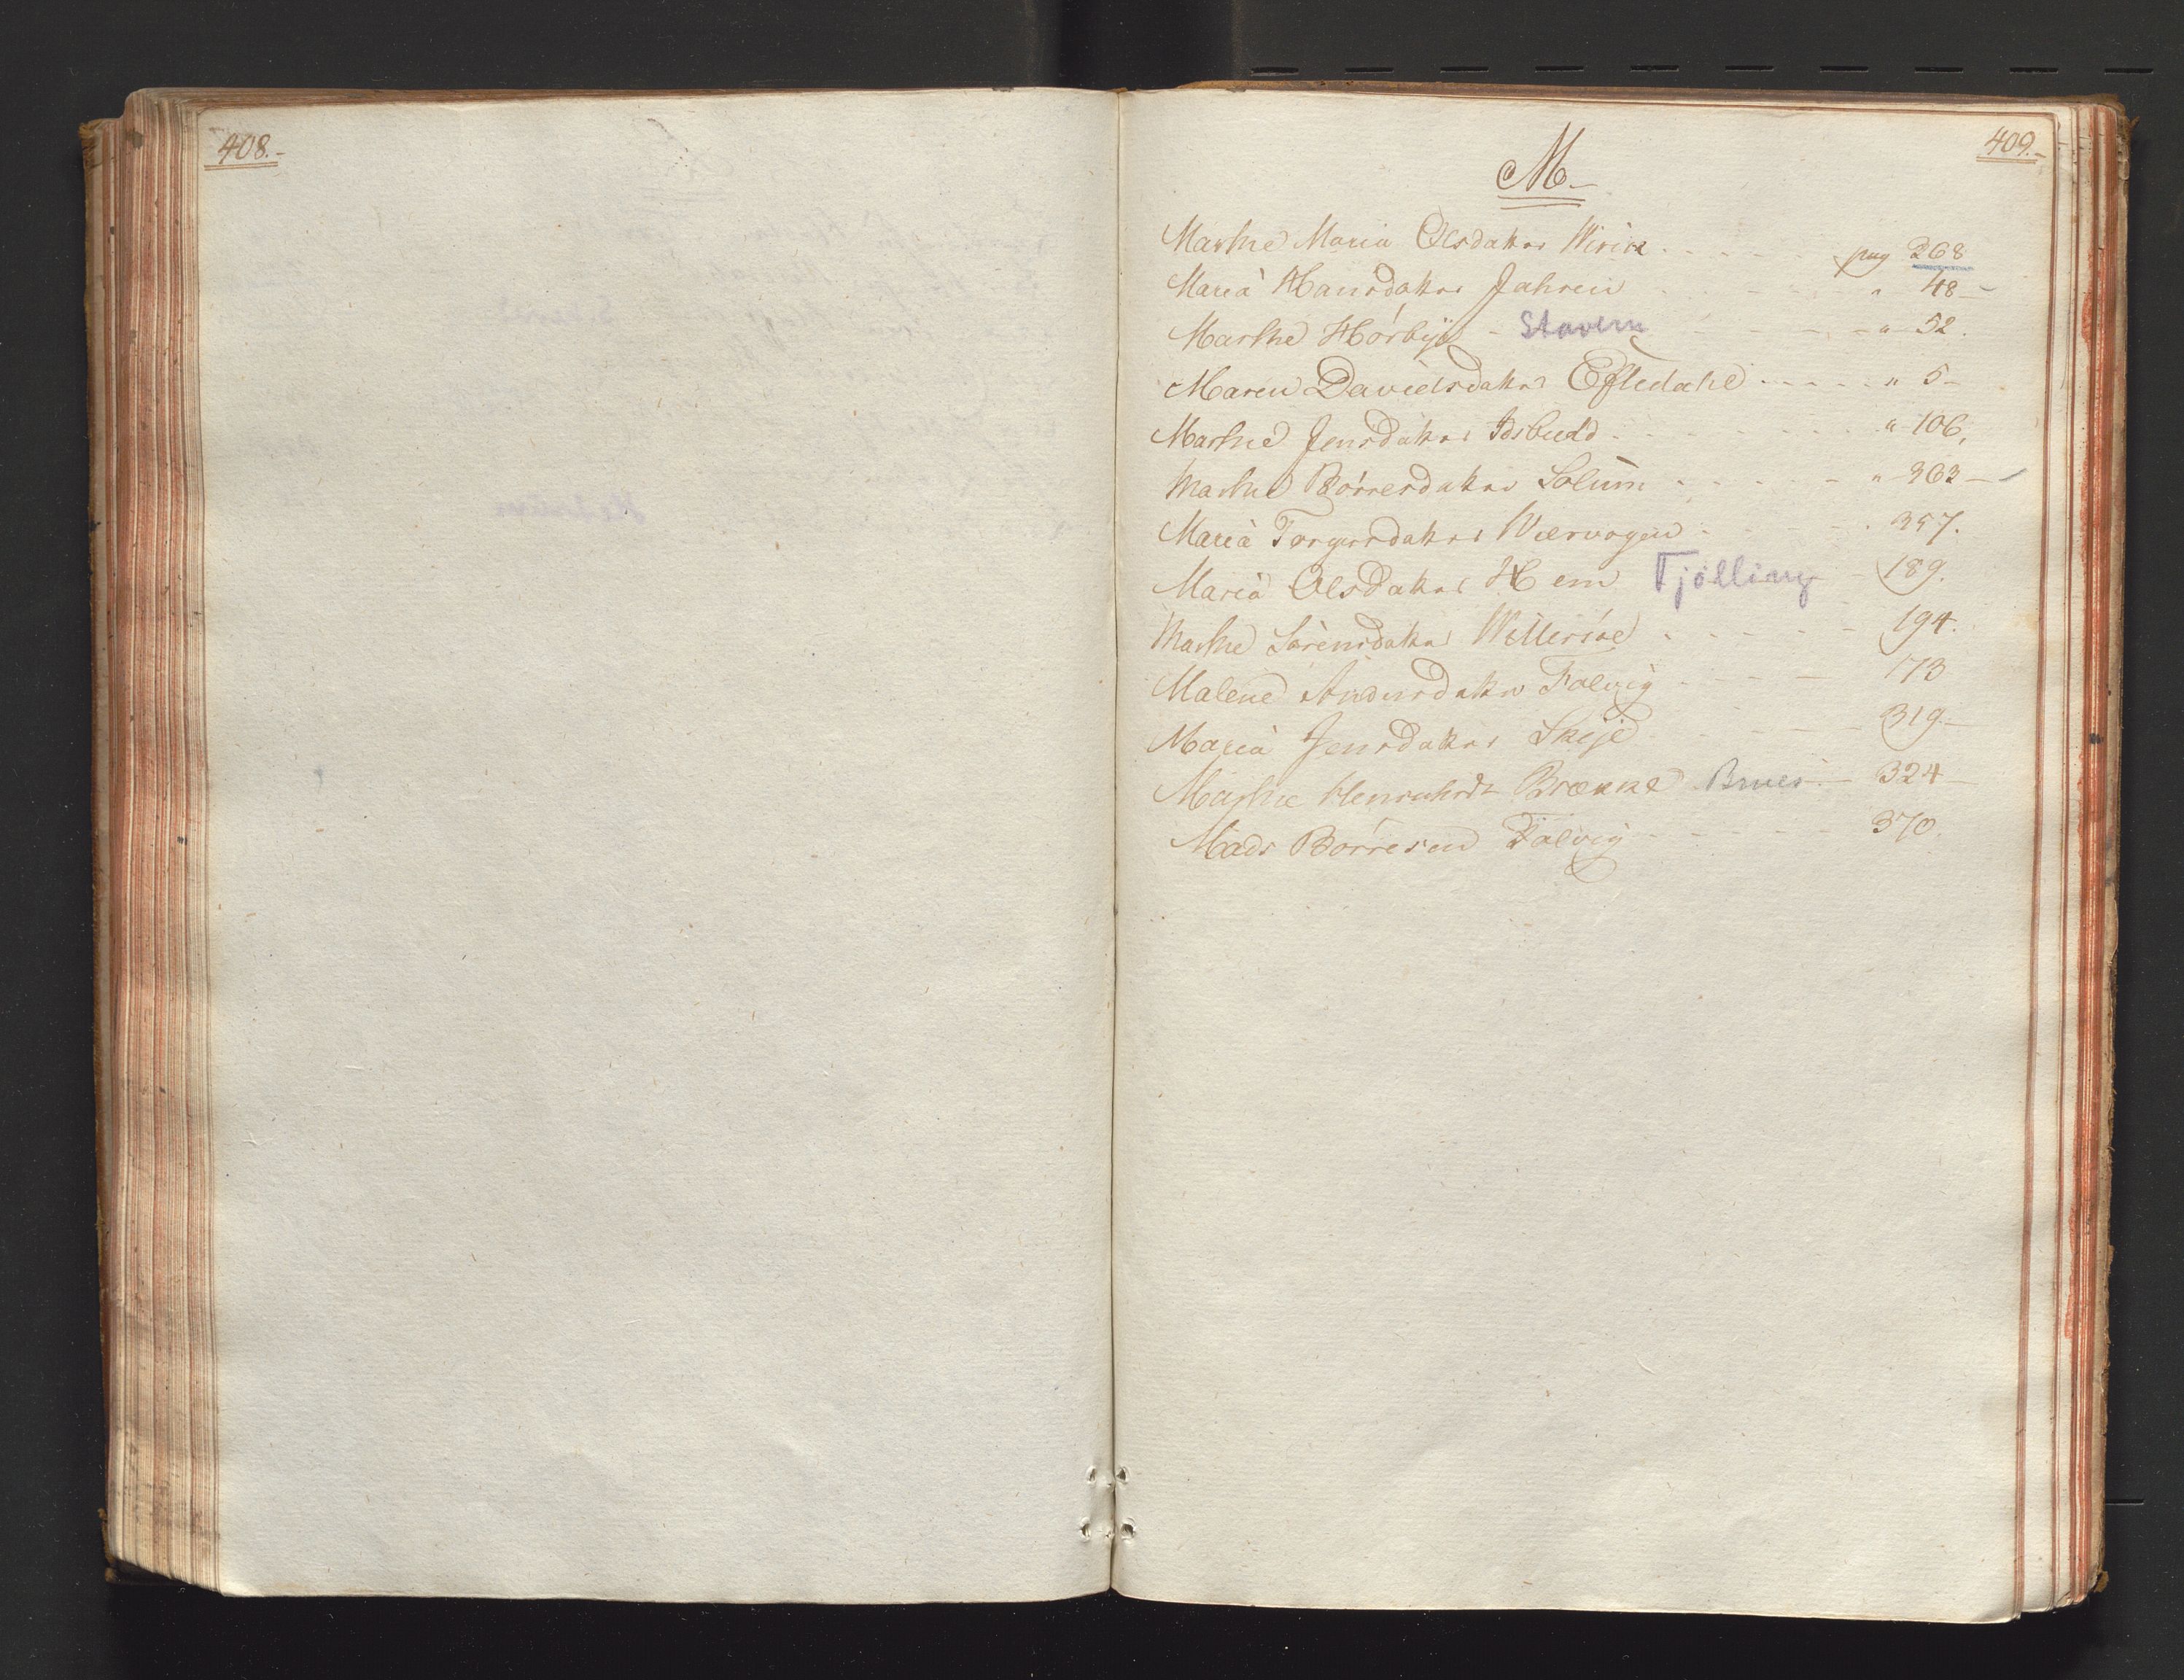 408.-
409.-
M-
Marthe Maria Olsdatter Wirik - - - - - pag 268
Maria Hansdatter Jahren - - - - " 48 -
Marthe Hørbye - Stavern - - - - " 52.
Maren Davidsdatter Eftedahl - - - - - " 5 -
Marthe Jensdatter - - - - - - " 106,
Marthe Børresdatter Solum - - - - - " 363 -
Maria Torgersdatter Wærvogen - - - - 357.
Maria Olsdatter Hem Tjølling - 189.
Marthe Sørensdatter - - - - - - 194.
Malene Andersdatter Falvig - - - - 173
Maria Jensdatter Skije - - - - 319. -
Marthe Brække - 324 -
Mads Børresen Falvig - - - - - - 370.